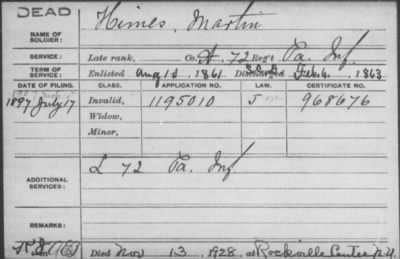 DEAD
NAME OF SOLDIER: Himes, Martin
SERVICE: Late rank, Co. A, 72 Reg't Pa. Inf
TERM OF SERVICE: Enlisted Aug 10 1861. Discharged Feb. 6. 1863
DATE OF FILING. CLASS. APPLICATION NO. LAW. CERTIFICATE NO.
1897 July 17 Invalid, 1195010 968676
Widow,
Minor,
ADDITIONAL SERVICES: L 72 Pa. Inf
REMARKS:
Died Nov 13 1928. at Rockville Center N.Y.